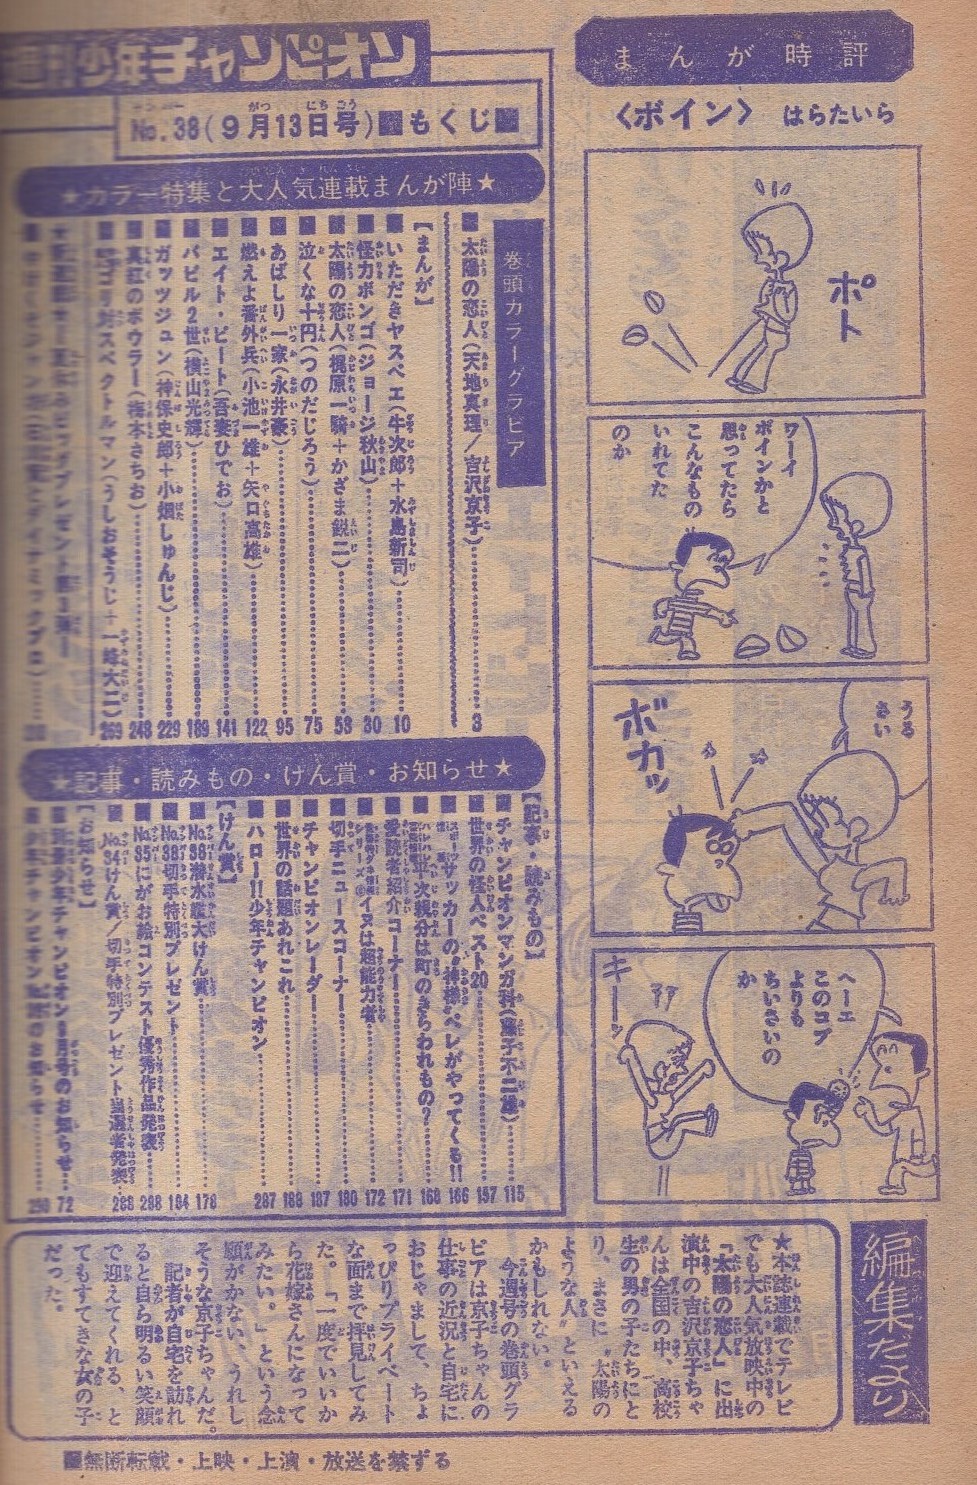 まんが時評
〈ボイン〉 はらたいら
ポト
ワーイ
ボインかと
思ってたら
こんなもの
いれてた
のか
うる
さい
ボカッ
ヘーエ
このコブ
よりも
ちいさいの
か
キーッ
週刊少年チャンピオン
No.38(9月13日号)■もくじ■
★カラー特集と大人気連載まんが陣★
巻頭カラーグラビア
■太陽の恋人(天地真理/吉沢京子)……3
【まんが】
■いただきヤスベエ(牛次郎+水島新司)……10
■怪力ボンゴ(ジョージ秋山)……30
■太陽の恋人(梶原一騎+かざま鋭二)……53
■泣くな十円(つのだじろう)……75
■あばしり一家(永井豪)……95
■燃えよ番外兵(小池一雄+矢口高雄)……122
■エイト・ビート(吾妻ひでお)……141
■バビル2世(横山光輝)……189
■ガッツジュン(神保史郎+小畑しゅんじ)……229
■真紅のボウラー(梅本さちお)……248
スペクトルマン(うしおそうじ+一峰大二)269
★記事・読みもの・けん賞・お知らせ★
【記事・読みもの】
■チャンピオンマンガ科(藤子不二雄)……115
■世界の怪人ベスト20……157
■スポーツサッカーの"神様"ペレがやってくる!!166
次親分は町のきらわれもの?……168
■愛読者紹介コーナー……171
イヌは超能力者……172
■切手ニュースコーナー……180
■チャンピオンレーダー……187
■世界の話題あれこれ……188
■ハロー!!少年チャンピオン……287
【けん賞】
■No.38潜水艦大けん賞……178
■No.38切手特別プレゼント……184
■No.35にがお絵コンテスト優秀作品発表……288
■No.34けん賞/切手特別プレゼント当選者発表…288
【お知らせ】
少年チャンピオン 月号のお知らせ……72
編集だより
★本誌連載でテレビ
でも大人気放映中の
「太陽の恋人」に出
演中の吉沢京子ちゃ
んは全国の中、高校
生の男の子たちにと
り、まさに〝太陽の
ような人〟といえる
かもしれない。
今週号の巻頭グラ
ビアは京子ちゃんの
仕事の近況と自宅に
おじゃまして、ちょ
っぴりプライベート
な面まで拝見してみ
た。「一度でいいか
ら花嫁さんになって
みたい。」という念
願がかない、うれし
そうな京子ちゃんだ。
記者が自宅を訪れ
ると自ら明るい笑顔
で迎えてくれる、と
てもすてきな女の子
だった。
■無断転載・上映・上演・放送を禁ずる